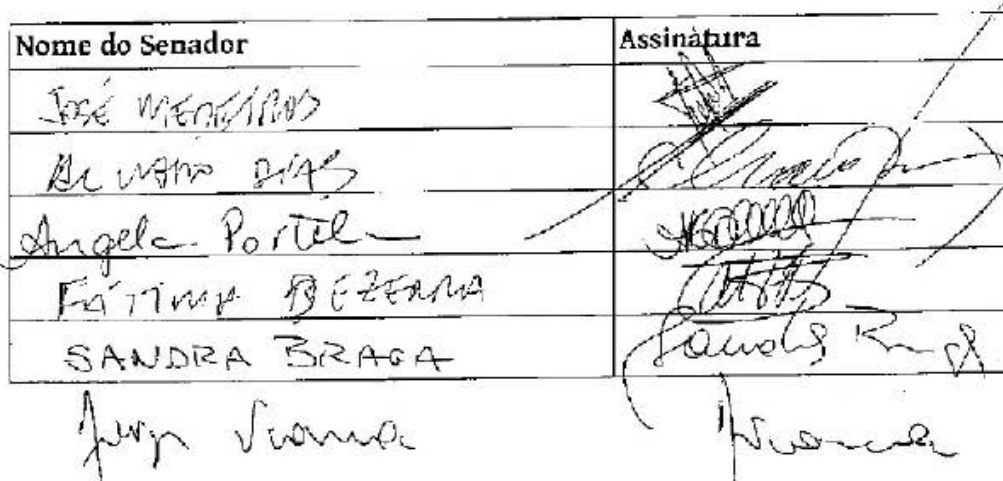 Nome do Senador Assinatura
JOSÉ MEDEIROS
ALVARO DIAS
Angela Portela
FÁTIMA BEZERRA
SANDRA BRAGA Sandra Braga
Jorge Viana JViana